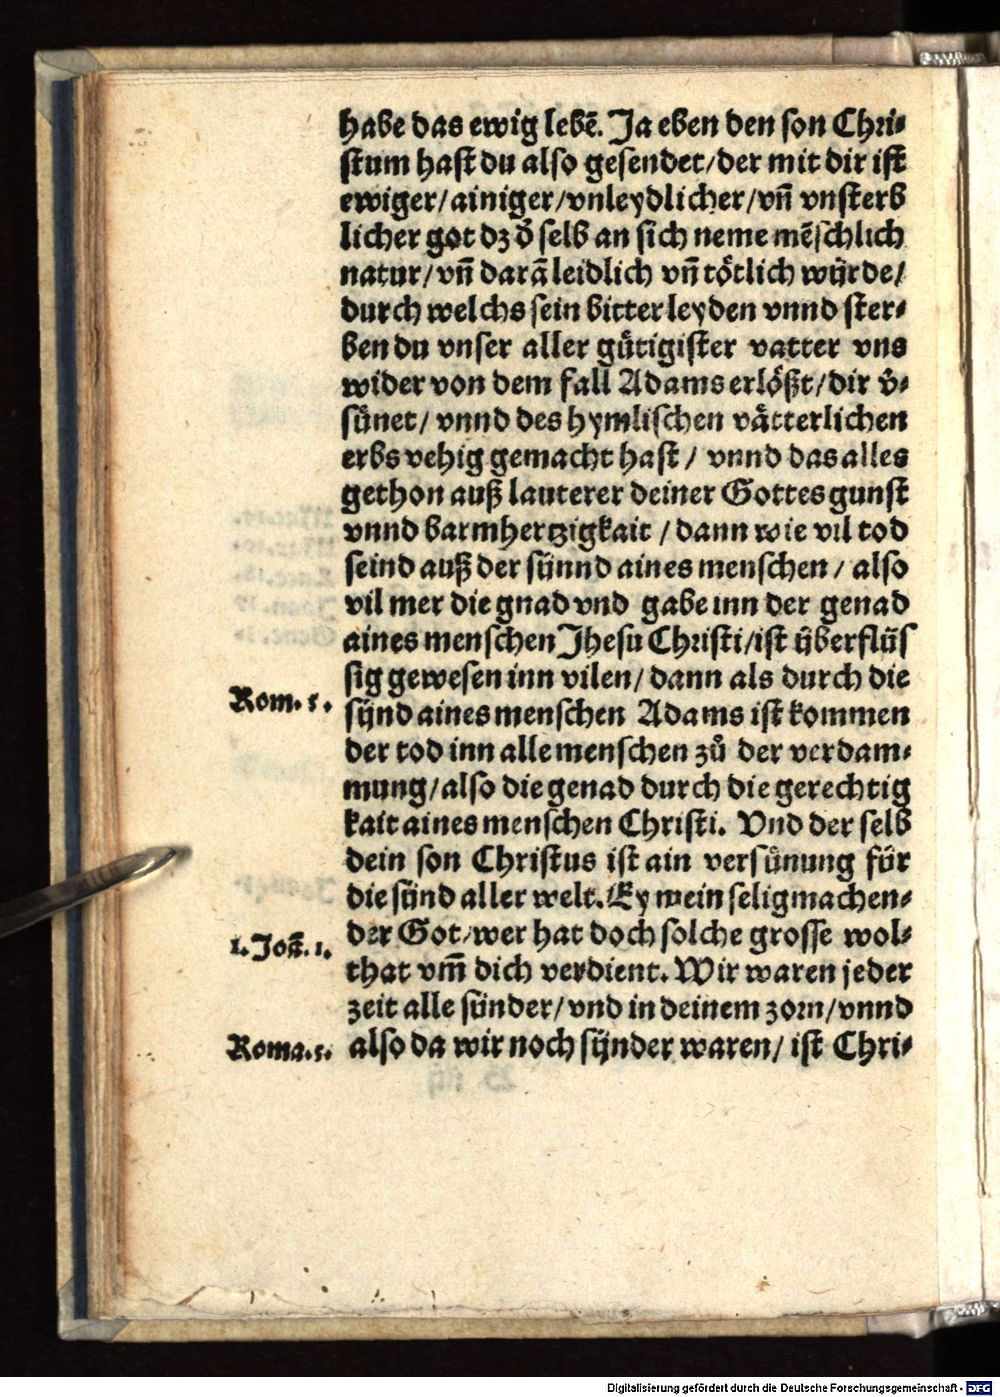 habe das ewig lebē. Ja eben den son Chri⸗
stum hast du also gesendet/der mit dir ist
ewiger/ainiger/vnleydlicher/vñ vnsterb
licher got dz d̕ selb an sich neme mēschlich
natur/vñ darā leidlich vñ tötlich wu̇rde/
durch welchs sein bitter leyden vnnd ster⸗
ben du vnser aller gütigister vatter vns
wider von dem fall Adams erlößt/dir v̕⸗
sünet/ vnnd des hymlischen vätterlichen
erbs vehig gemacht hast/ vnnd das alles
gethon auß lauterer deiner Gottes gunst
vnnd barmhertzigkait/dann wie vil tod
seind auß der sünnd aines menschen/ also
vil mer die gnad vnd gabe inn der genad
aines menschen Jhesu Christi/ist überflüs
sig gewesen inn vilen/ dann als durch die
Rom. 5.
sünd aines menschen Adams ist kommen
der tod inn alle menschen zů der verdam⸗
mung/also die genad durch die gerechtig
kait aines menschen Christi. Vnd der selb
dein son Christus ist ain versünung für
die sünd aller welt. Ey mein seligmachen⸗
1. Joā. 1.
der Got/wer hat doch solche grosse wol⸗
that vm̄ dich verdient. Wir waren jeder
zeit alle sünder/vnd in deinem zorn/vnnd
Roma. 5.
also da wir noch sünder waren/ ist Chri⸗
Digitalisierung gefördert durch die Deutsche Forschungsgemeinschaft - DFG